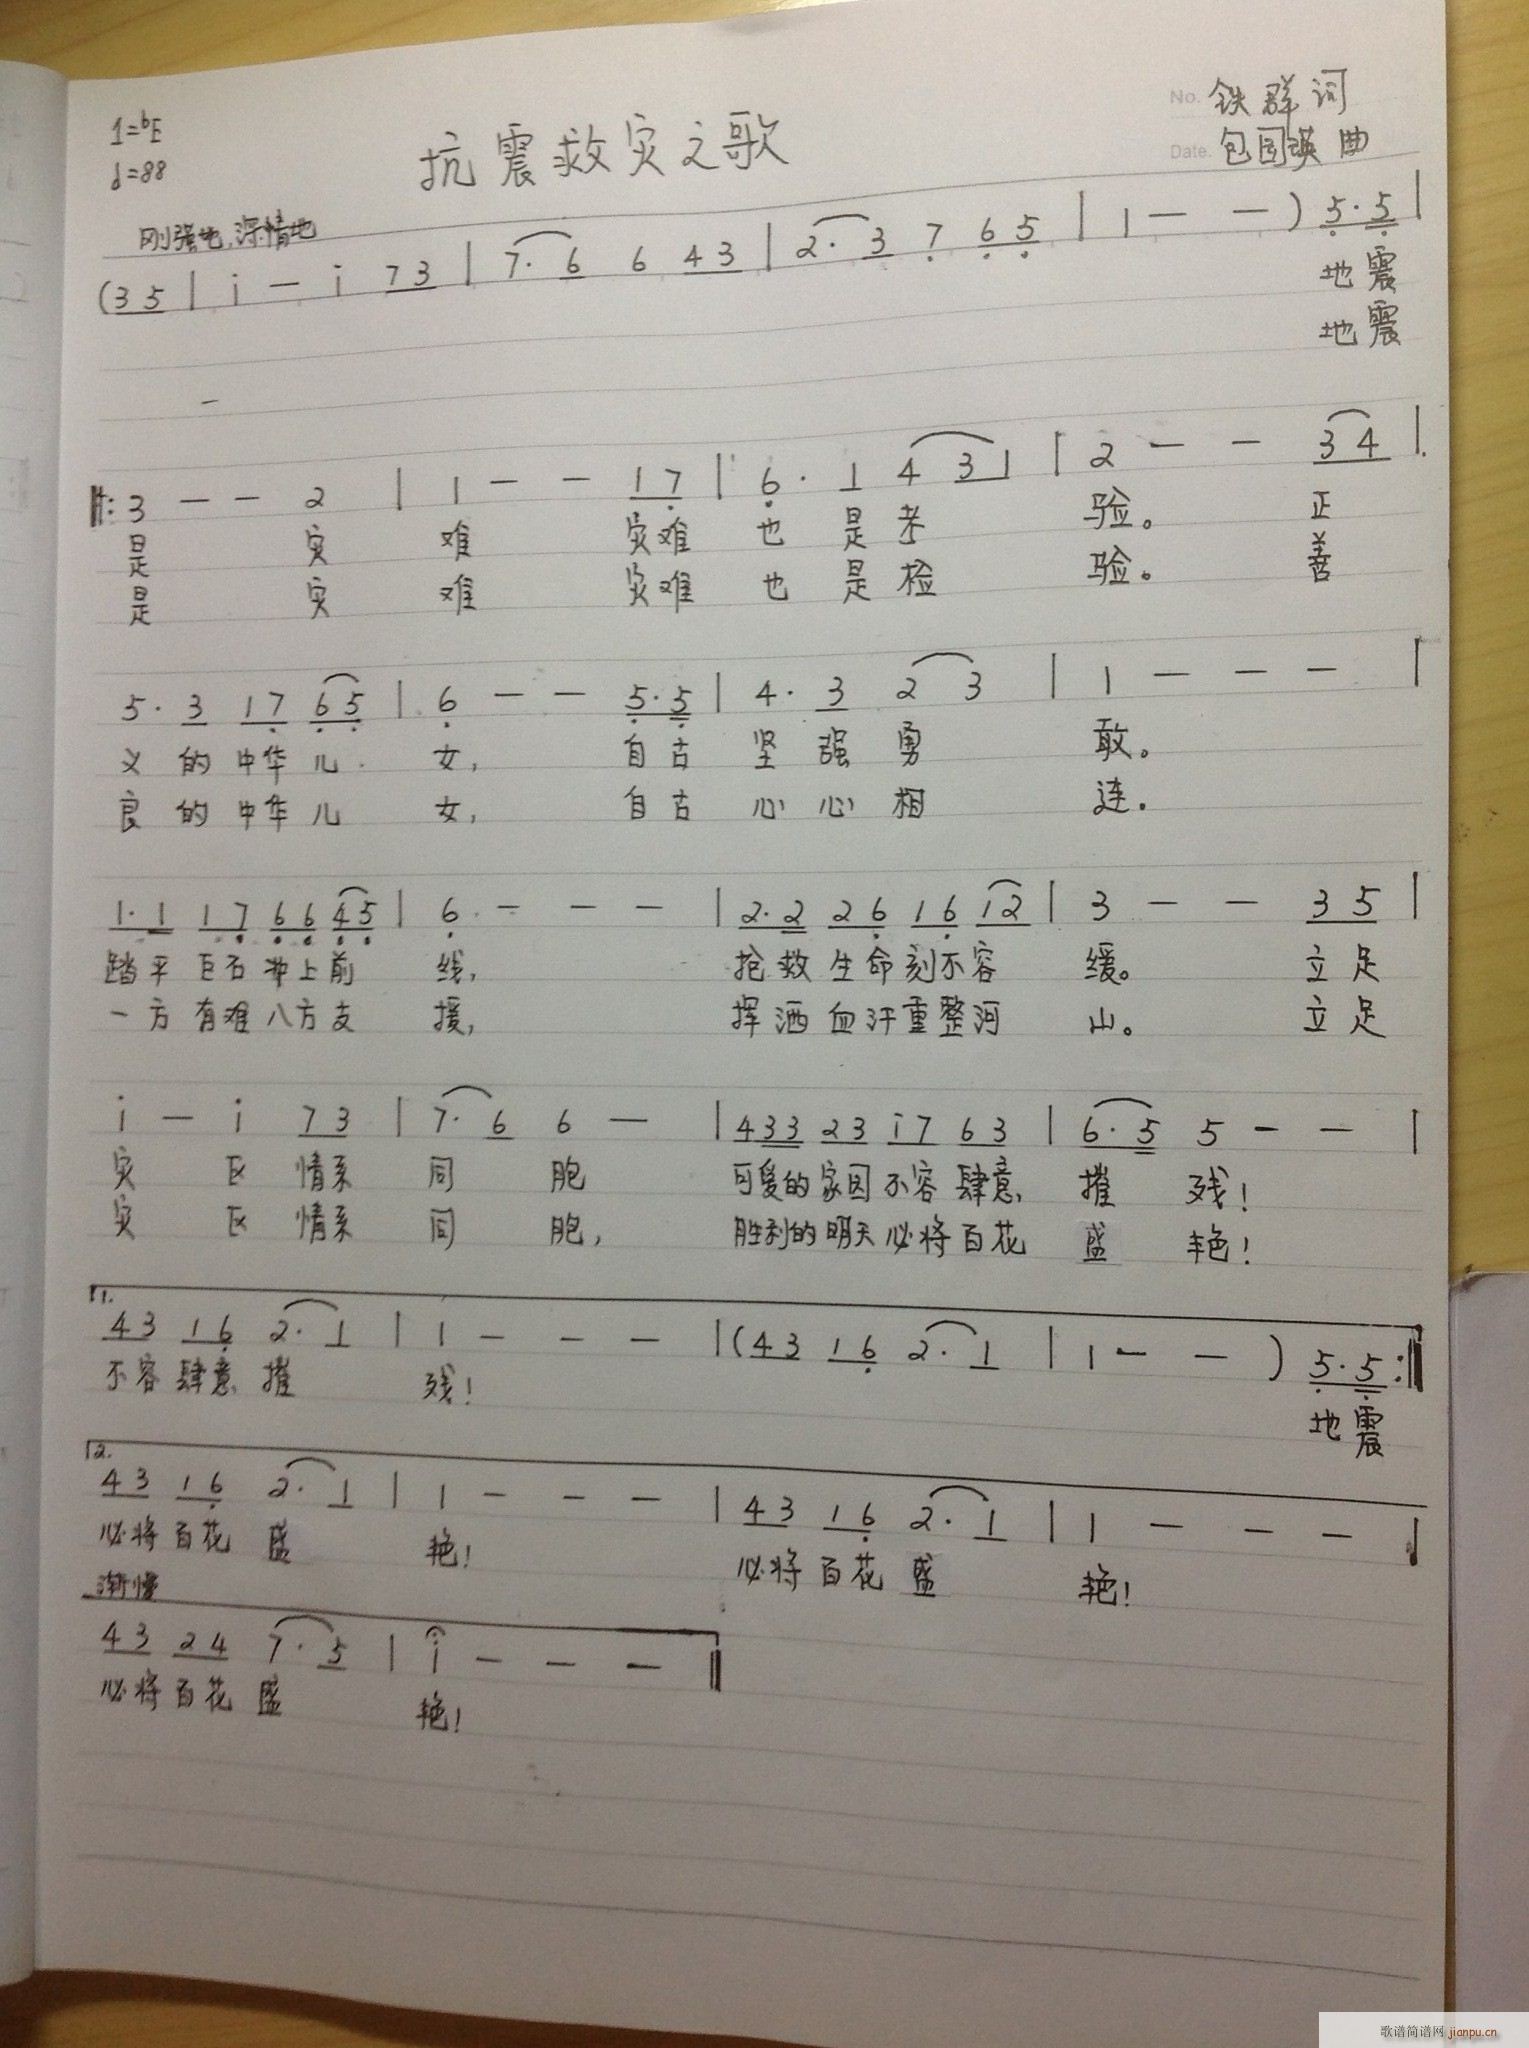 No. 铁群 词
1=bE
抗震救灾之歌
Date. 包国瑛 曲
♩=88
刚强地、深情地
(3 5 | i — i 7 3 | 7· 6 6 4 3 | 2· 3 7 6 5 | 1 — — ) 5· 5 |
地震
地震
‖: 3 — — 2 | 1 — — 1 7 | 6· 1 4 3 1 | 2 — — 3 4 |
是 灾 难 灾难 也 是 考 验。 正
是 灾 难 灾难 也 是 检 验。 善
5· 3 1 7 6 5 | 6 — — 5· 5 | 4· 3 2 3 | 1 — — — |
义 的 中华 儿 女, 自古 坚 强 勇 敢。
良 的 中华 儿 女, 自古 心 心 相 连.
1· 1 1 7 6 6 4 5 | 6 — — — | 2· 2 2 6 1 6 1 2 | 3 — — 3 5 |
踏平 巨石 冲上前 线, 抢救 生命刻不容 缓。 立足
一方 有难 八方支 援, 挥洒 血汗重整河 山。 立足
i — i 7 3 | 7· 6 6 — | 4 3 3 2 3 i 7 6 3 | 6· 5 5 — — |
灾 区 情系 同 胞 可爱的家园不容肆意 摧 残!
灾 区 情系 同 胞, 胜利的明天必将百花 盛 艳!
1.
4 3 1 6 2· 1 | 1 — — — | (4 3 1 6 2· 1 | 1 — — ) 5· 5 :‖
不容肆意 摧 残!
地震
2.
4 3 1 6 2· 1 | 1 — — — | 4 3 1 6 2· 1 | 1 — — — |
必将百花 盛 艳! 必将百花 盛 艳!
渐慢
4 3 2 4 7· 5 | i — — — ‖
必将百花 盛 艳!
歌谱简谱网 jianpu.cn